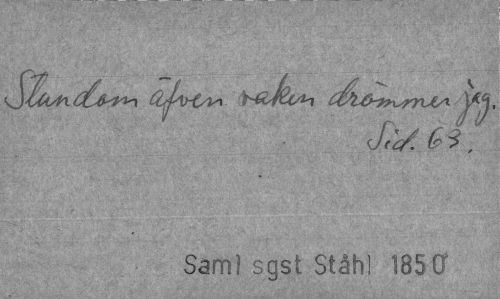 Stundom äfven vaken drömmer jag.
Sid. 63.
Saml sgst Ståhl 1850